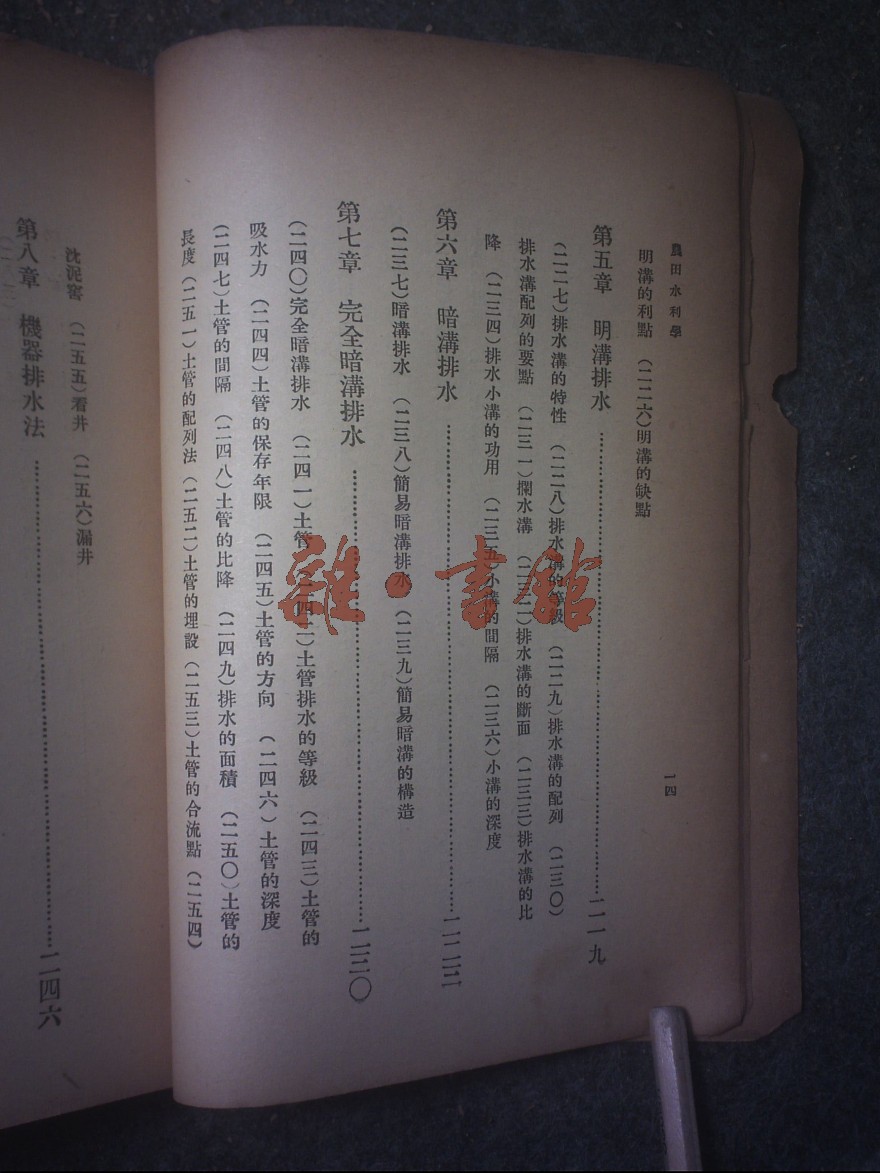 農田水利學
一四
明溝的利點 （二二六）明溝的缺點
第五章 明溝排水……二一九
（二二七）排水溝的特性 （二二八）排水溝的等級 （二二九）排水溝的配列 （二三〇）
排水溝配列的要點 （二三一）攔水溝 （二三二）排水溝的斷面 （二三三）排水溝的比
降 （二三四）排水小溝的功用 （二三五）小溝的間隔 （二三六）小溝的深度
第六章 暗溝排水……
（二三七）暗溝排水 （二三八）簡易暗溝排水 （二三九）簡易暗溝的構造
第七章 完全暗溝排水……二三〇
（二四〇）完全暗溝排水 （二四一）土管 （二四二）土管排水的等級 （二四三）土管的
吸水力 （二四四）土管的保存年限 （二四五）土管的方向 （二四六）土管的深度
（二四七）土管的間隔 （二四八）土管的比降 （二四九）排水的面積 （二五〇）土管的
長度 （二五一）土管的配列法 （二五二）土管的埋設 （二五三）土管的合流點 （二五四）
沈泥窖 （二五五）看井 （二五六）漏井
第八章 機器排水法……二四六
雜·書館